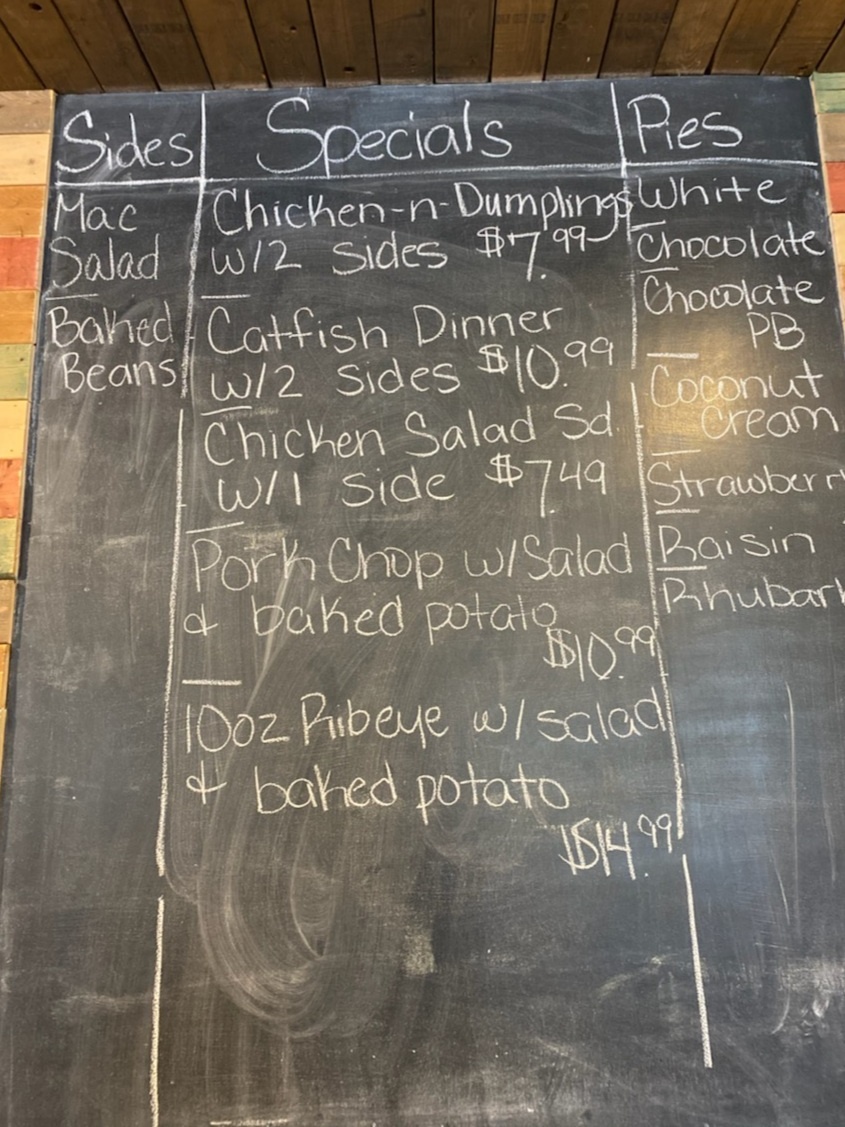 Sides
Mac
Salad
Baked
Beans
Specials
Chicken-n-Dumplings
w/2 sides $7.99
Catfish Dinner
w/2 sides $10.99
Chicken Salad Sd.
w/1 side $7.49
Pork Chop w/Salad
& baked potato
$10.99
10oz Ribeye w/salad
& baked potato
$14.99
Pies
White
Chocolate
Chocolate
PB
Coconut
Cream
Strawberr
Raisin
Rhubar